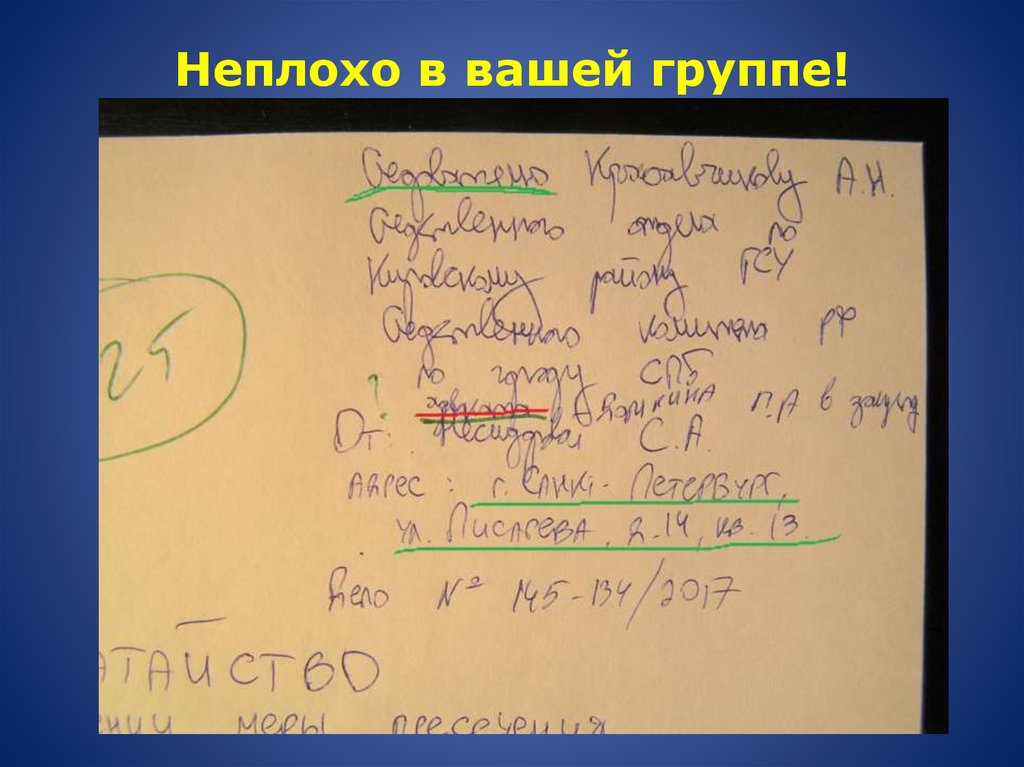 Неплохо в вашей группе!
Следователю А.Н.
Следственного отдела по
Кировскому району ГСУ
25
Следственного комитета РФ
по городу СПБ
?
адвоката П.А в защиту
От: С.А.
Адрес: г. Санкт-Петербург,
ул. Писарева, д.14, кв. 13.
Дело № 145-134/2017
АТАЙСТВО
ении меры пресечения